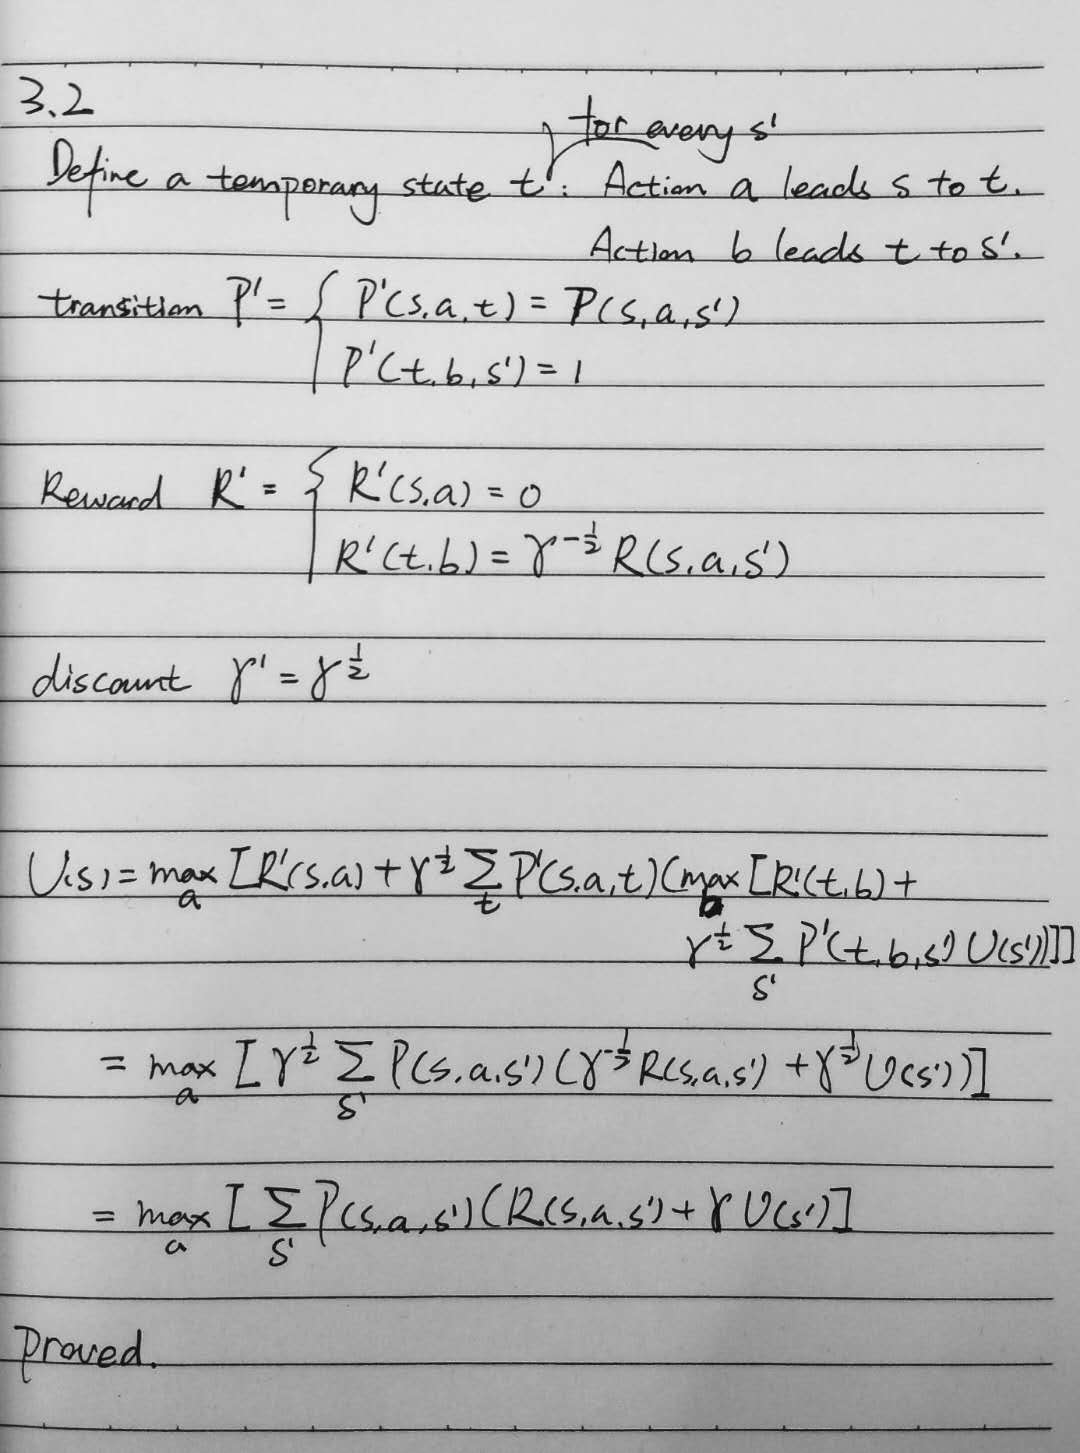 3.2
for every s'
Define a temporary state t : Action a leads s to t.
Action b leads t to s'.
transition P' = { P'(s,a,t) = P(s,a,s')
P'(t,b,s') = 1
Reward R' = { R'(s,a) = 0
R'(t,b) = γ^{-1/2} R(s,a,s')
discount γ' = γ^{1/2}
U(s) = max_a [R'(s,a) + γ^{1/2} Σ_t P'(s,a,t)(max_b [R'(t,b) +
γ^{1/2} Σ_{s'} P'(t,b,s') U(s'))]]
= max_a [γ^{1/2} Σ_{s'} P(s,a,s')(γ^{-1/2} R(s,a,s') + γ^{1/2} U(s'))]
= max_a [Σ_{s'} P(s,a,s')(R(s,a,s') + γ U(s')]
Proved.